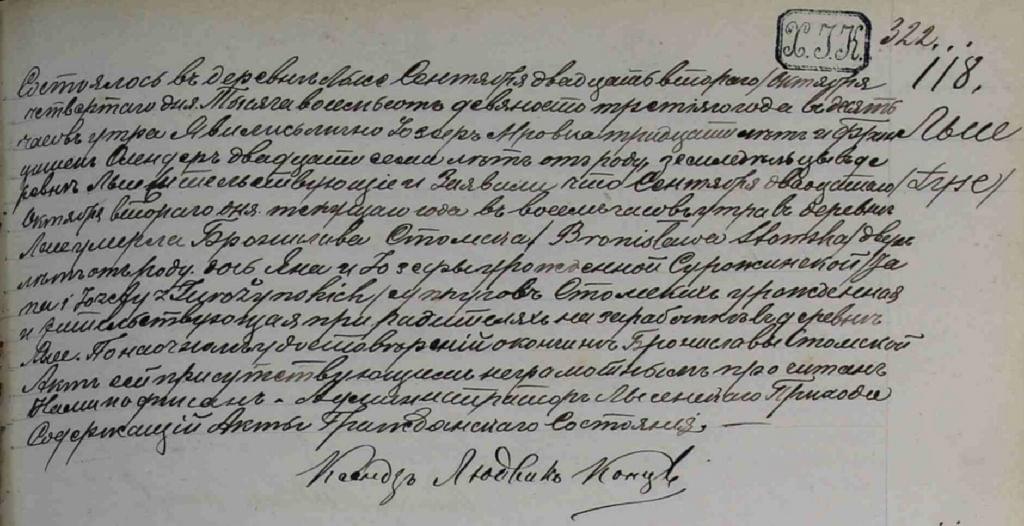 Х.I.К.
322...
118.
Лысе
/Łyse/
Состоялось въ деревнѣ Лысе Сентября двадцать втораго/Октября
четвертаго дня Тысяча восемьсотъ девяносто третьяго года въ десять
часовъ утра Явились лично Іозефъ Мровка тридцати лѣтъ и Фран
цишекъ Олендеръ двадцати семи лѣтъ отъ роду, земледѣльцы въ де
ревнѣ Лысе жительствующіе и Заявили, что Сентября двадцатаго/
Октября втораго дня текущаго года въ восемь часовъ утра въ деревнѣ
Лысе умерла Бронислава Стомска/Bronisława Stomska/двухъ
лѣтъ отъ роду, дочь Яна и Іозефы урожденной Сурожинской/Ja
na i Jozefy z Surożynskich/супруговъ Стомскихъ урожденная
и жительствующая при родителяхъ на заработкахъ въ деревнѣ
Лысе. По наочномъ удостовѣреніи о кончинѣ Брониславы Стомской
Актъ сей присутствующимъ неграмотнымъ прочитанъ
Нами подписанъ. - Администраторъ Лысенскаго Прихода
Содержащій Акты Гражданскаго Состоянія. —
Ксендзъ Людвикъ